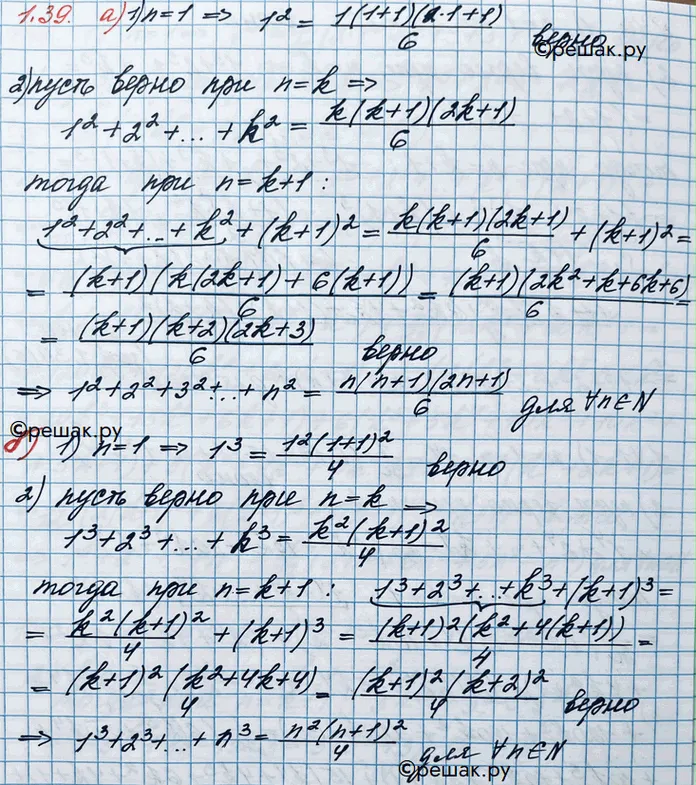 1.39. а) 1) n=1 => 1² = 1(1+1)(2·1+1)/6 верно
©решак.ру
2) пусть верно при n=k =>
1²+2²+...+k² = k(k+1)(2k+1)/6
тогда при n=k+1:
1²+2²+...+k²+(k+1)² = k(k+1)(2k+1)/6 + (k+1)² =
= (k+1)(k(2k+1)+6(k+1))/6 = (k+1)(2k²+k+6k+6)/6 =
= (k+1)(k+2)(2k+3)/6 верно
=> 1²+2²+3²+...+n² = n(n+1)(2n+1)/6 для ∀n∈N
©решак.ру
б) 1) n=1 => 1³ = 1²(1+1)²/4 верно
2) пусть верно при n=k =>
1³+2³+...+k³ = k²(k+1)²/4
тогда при n=k+1: 1³+2³+...+k³+(k+1)³ =
= k²(k+1)²/4 + (k+1)³ = (k+1)²(k²+4(k+1))/4 =
= (k+1)²(k²+4k+4)/4 = (k+1)²(k+2)²/4 верно
=> 1³+2³+...+n³ = n²(n+1)²/4 для ∀n∈N
©решак.ру